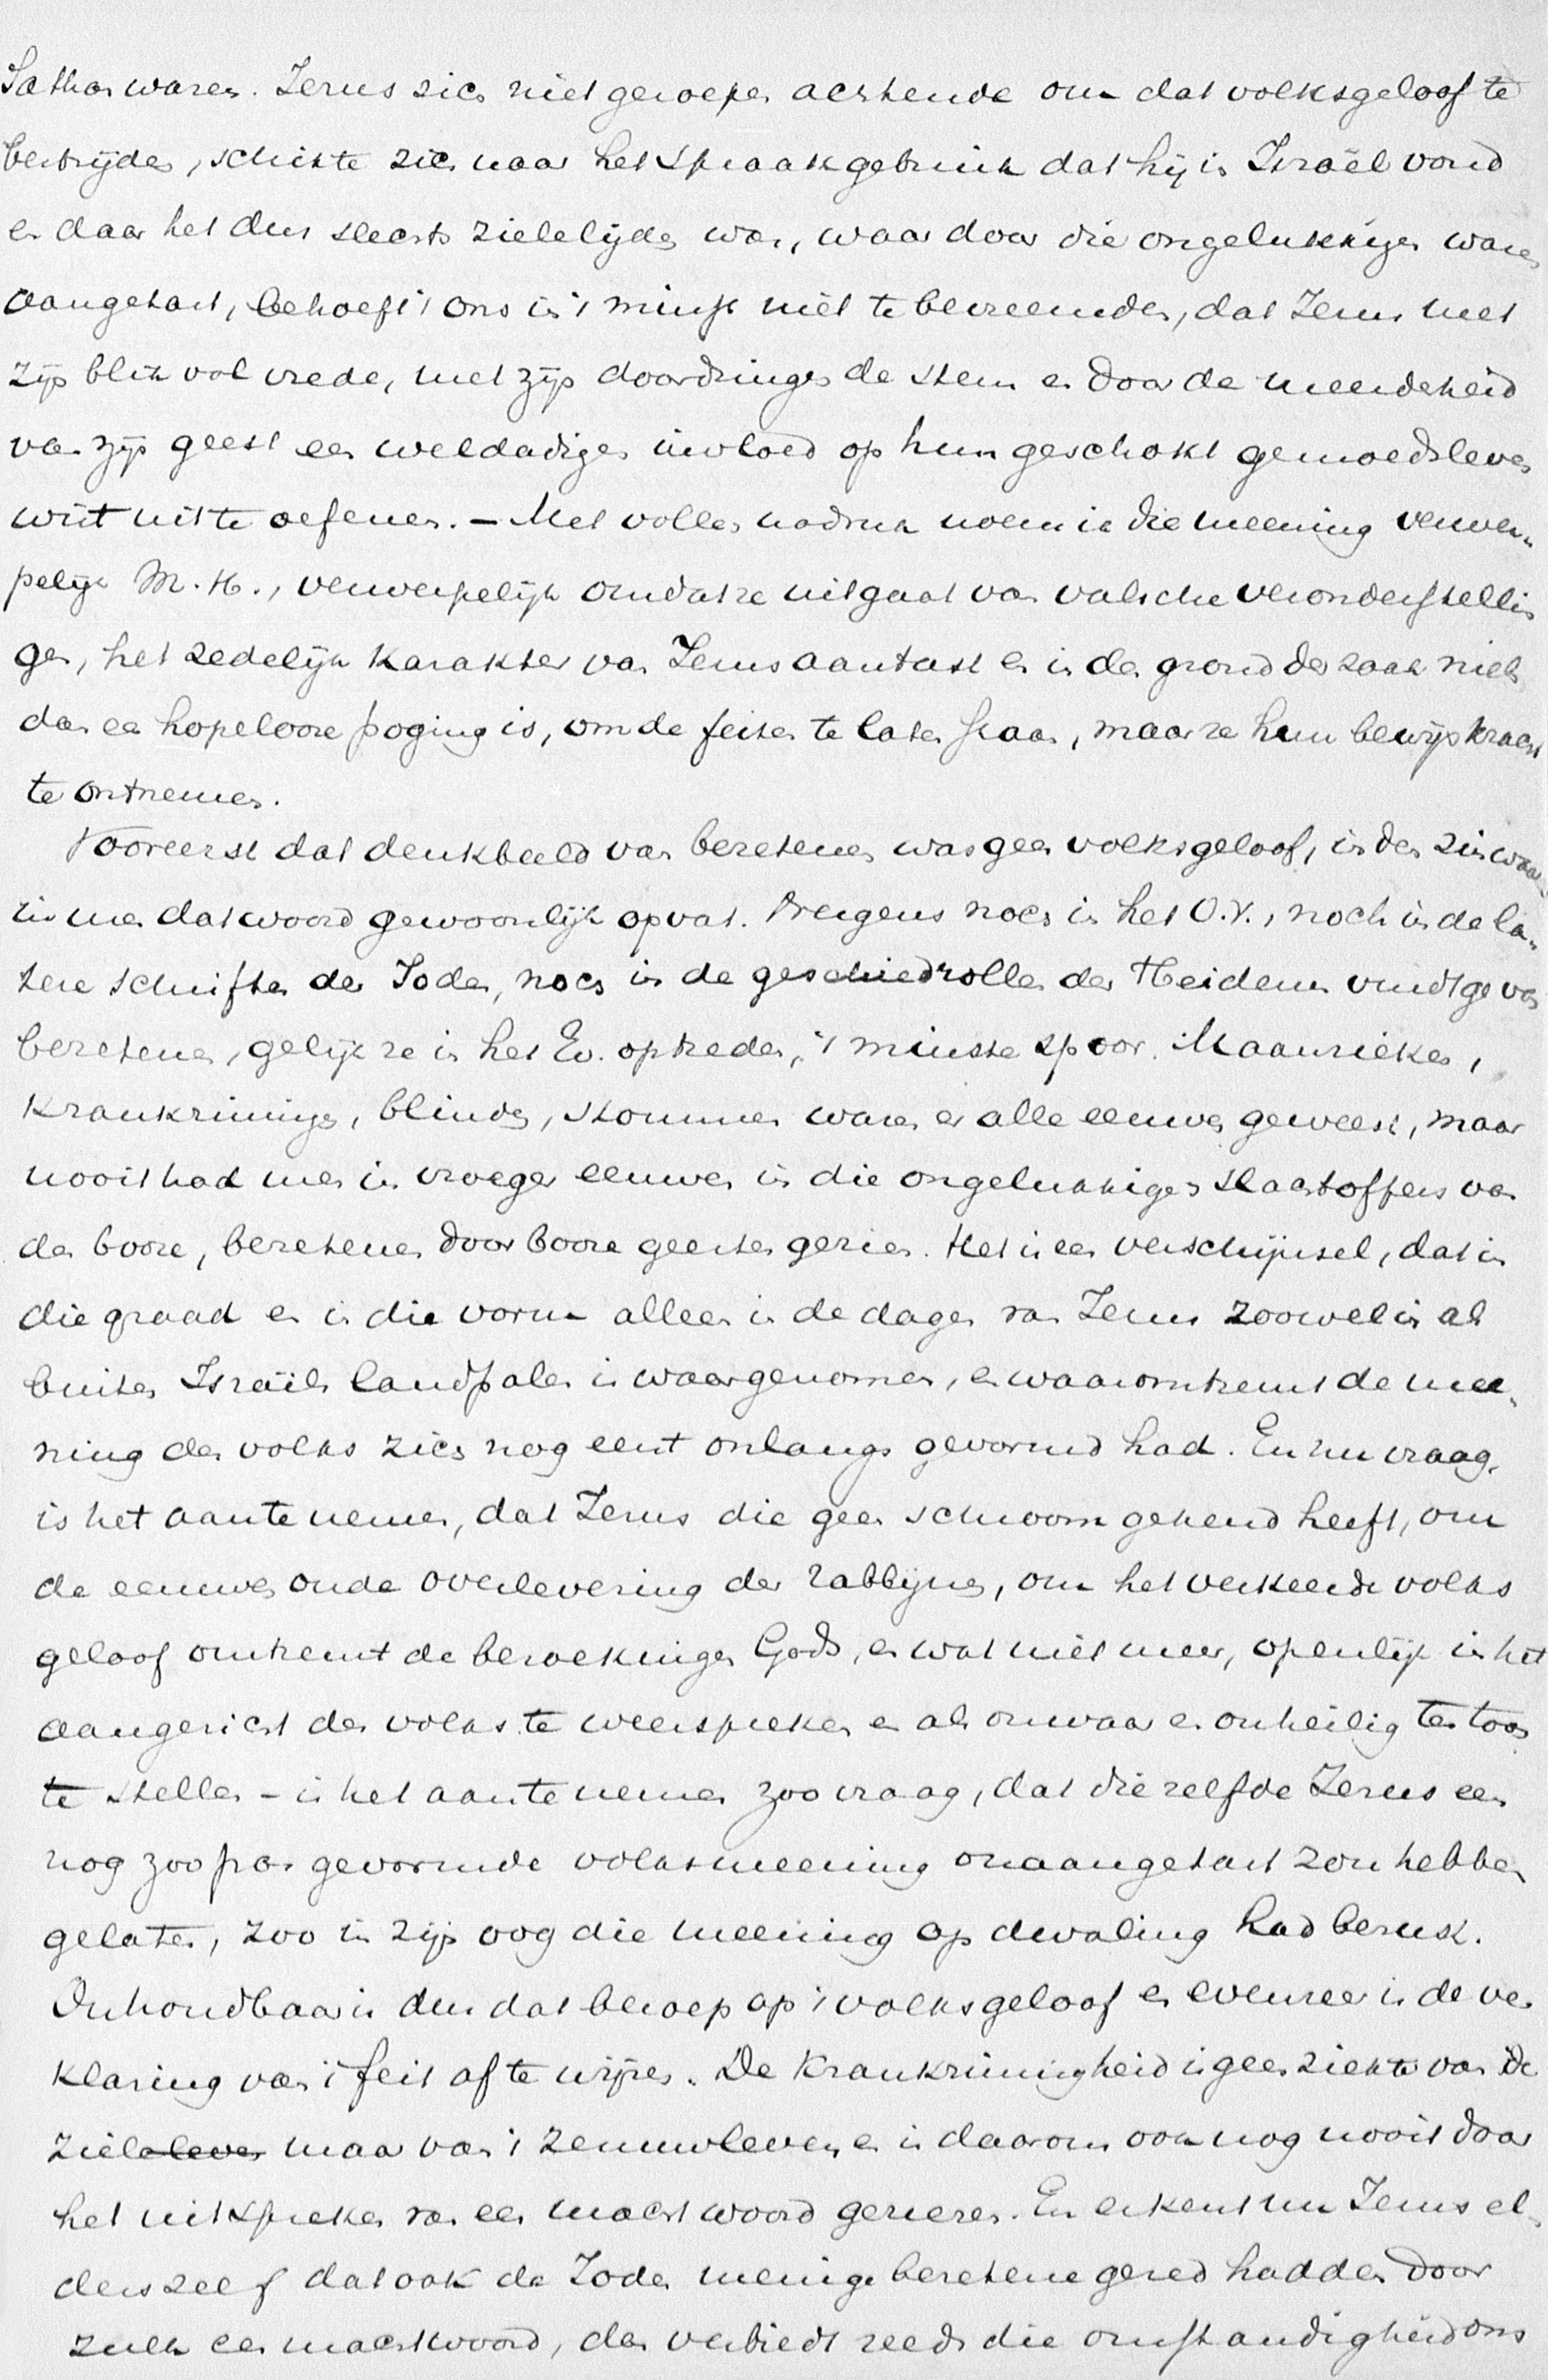 Sathan waren. Jezus zich niet geroepen achtende om dat volksgeloof te
bestrijden, schikte zich naar het spraakgebruik dat hij in Israël vond
en daar het dus slechts zielelijden was, waardoor die ongelukkigen waren
aangetast, behoeft 't ons in 't minst niet te bevreemden, dat Jezus met
zijn blik vol vrede, met zijn doordringende stem en door de meerderheid
van zijn geest een weldadigen invloed op hun geschokt gemoedsleven
wist uit te oefenen. – Met vollen nadruk noem ik die meening verwer-
pelijk M.H., verwerpelijk omdat ze uitgaat van valsche veronderstellin
gen, het zedelijk karakter van Jezus aantast en in den grond der zaak niets
dan een hopelooze poging is, om de feiten te laten staan, maar ze hun bewijskracht
te ontnemen.
Vooreerst dat denkbeeld van bezetenen was geen volksgeloof, in den zin waar
in men dat woord gewoonlijk opvat. Nergens noch in het O.V., noch in de la-
tere schriften der Joden, noch in de geschiedrollen der Heidenen vindt ge van
bezetenen, gelijk ze in het Ev. optreden, 't minste spoor. Maanzieken,
krankzinnige, blinden, stommen waren er alle eeuwen geweest, maar
nooit had men in vroeger eeuwen in die ongelukkigen slachtoffers van
den booze, bezetenen door booze geesten gezien. Het is een verschijnsel, dat in
die graad en in die vorm alleen in de dagen van Jezus zoowel in als
buiten Israëls landpalen is waargenomen, en waaromtrent de mee-
ning des volks zich nog eerst onlangs gevormd had. En nu vraag,
is het aan te nemen, dat Jezus die geen schroom gekend heeft, om
de eeuwen oude overlevering der rabbijnen, om het verkeerde volks
geloof omtrent de bezoekingen Gods, en wat niet meer, openlijk in het
aangezicht des volks te weerspreken en als onwaar en onheilig ten toon
te stellen – is het aan te nemen zoo vraag, dat diezelfde Jezus een
nog zoo pas gevormde volksmeening onaangetast zou hebben
gelaten, zoo in zijn oog die meening op dwaling had berust.
Onhoudbaar is dus dat beroep op 't volksgeloof en evenzeer is de ver
klaring van 't feit af te wijzen. De krankzinnigheid is geen ziekte van de
ziel maar van 't zenuwleven, en is daarom ook nog nooit door
het uitspreken van een machtwoord genezen. En erkent nu Jezus el-
ders zelf dat ook de Joden menige bezetene gered hadden door
zulk een machtwoord, dan verbiedt reeds die omstandigheid ons